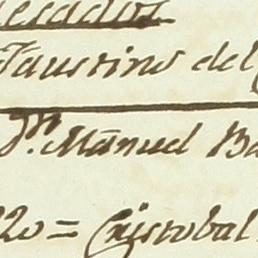 Faustino del
Dn. Manuel Ba
20 = Cristobal